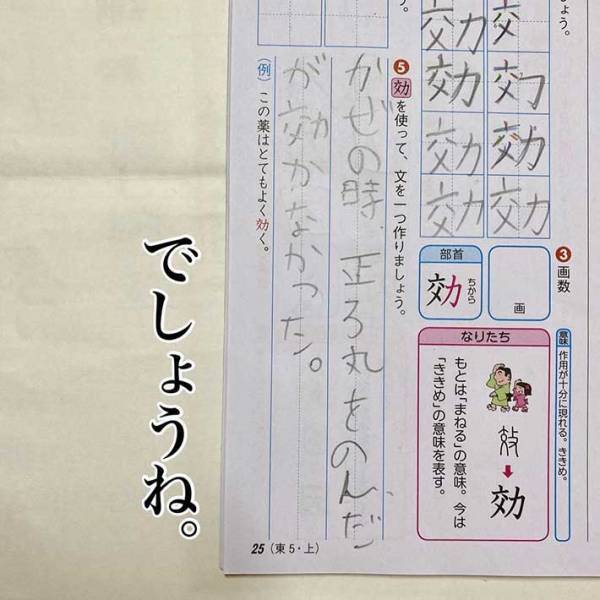 ょう。
意味
作用が十分に現れる。ききめ。
❸画数
画
効
効
効
効
効
効
効
部首
効
ちから
なりたち
もとは「まねる」の意味。今は
「ききめ」の意味を表す。
効
う。
❺効を使って、文を一つ作りましょう。
かぜの時、正ろ丸をのんだ
が効かなかった。
(例)この薬はとてもよく効く。
25(東5・上)
でしょうね。